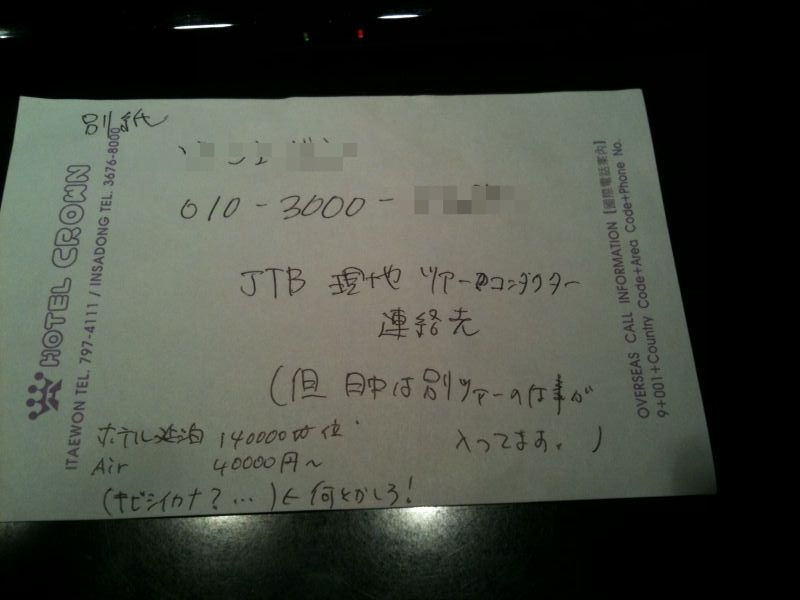 別紙
010-3000-
JTB 現地 ツアーコンダクター
連絡先
(但 日中は別ツアーの仕事が
入ってます。)
ホテル延泊 140000W位
Air 40000円〜
(キビシイカナ?…)← 何とかしろ!
HOTEL CROWN
ITAEWON TEL. 797-4111 / INSADONG TEL. 3676-8000
OVERSEAS CALL INFORMATION [國際電話案內]
9+001+Country Code+Area Code+Phone No.